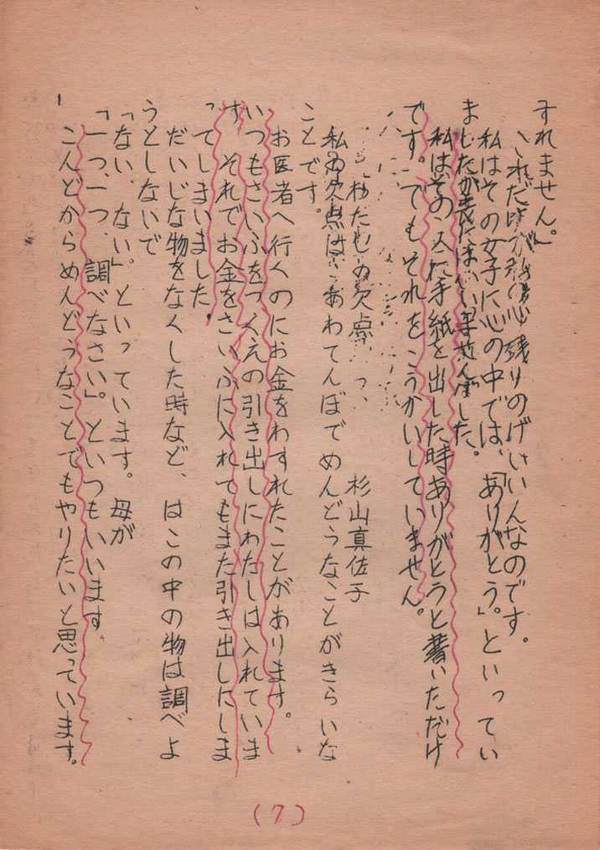 すれません。
これだけが心残りのげんいんなのです。
私はその女子に心の中では、「ありがとう。」といってい
ましたが表にはいいませんでした。
私はその人に手紙を出した時ありがとうと書いただけ
です。でもそれをこうかいしていません。
わたしの欠点 杉山真佐子
私の欠点は、あわてんぼでめんどうなことがきらいな
ことです。
お医者へ行くのにお金をわすれたことがあります。
いつもさいふをつくえの引き出しにわたしは入れていま
す。それでお金をさいふに入れてもまた引き出しにしま
ってしまいました。
だいじな物をなくした時など、はこの中の物は調べよ
うとしないで
「ない、ない。」といっています。母が
「一つ、一つ、調べなさい。」といつもいいます。
こんどからめんどうなことでもやりたいと思っています。
(7)